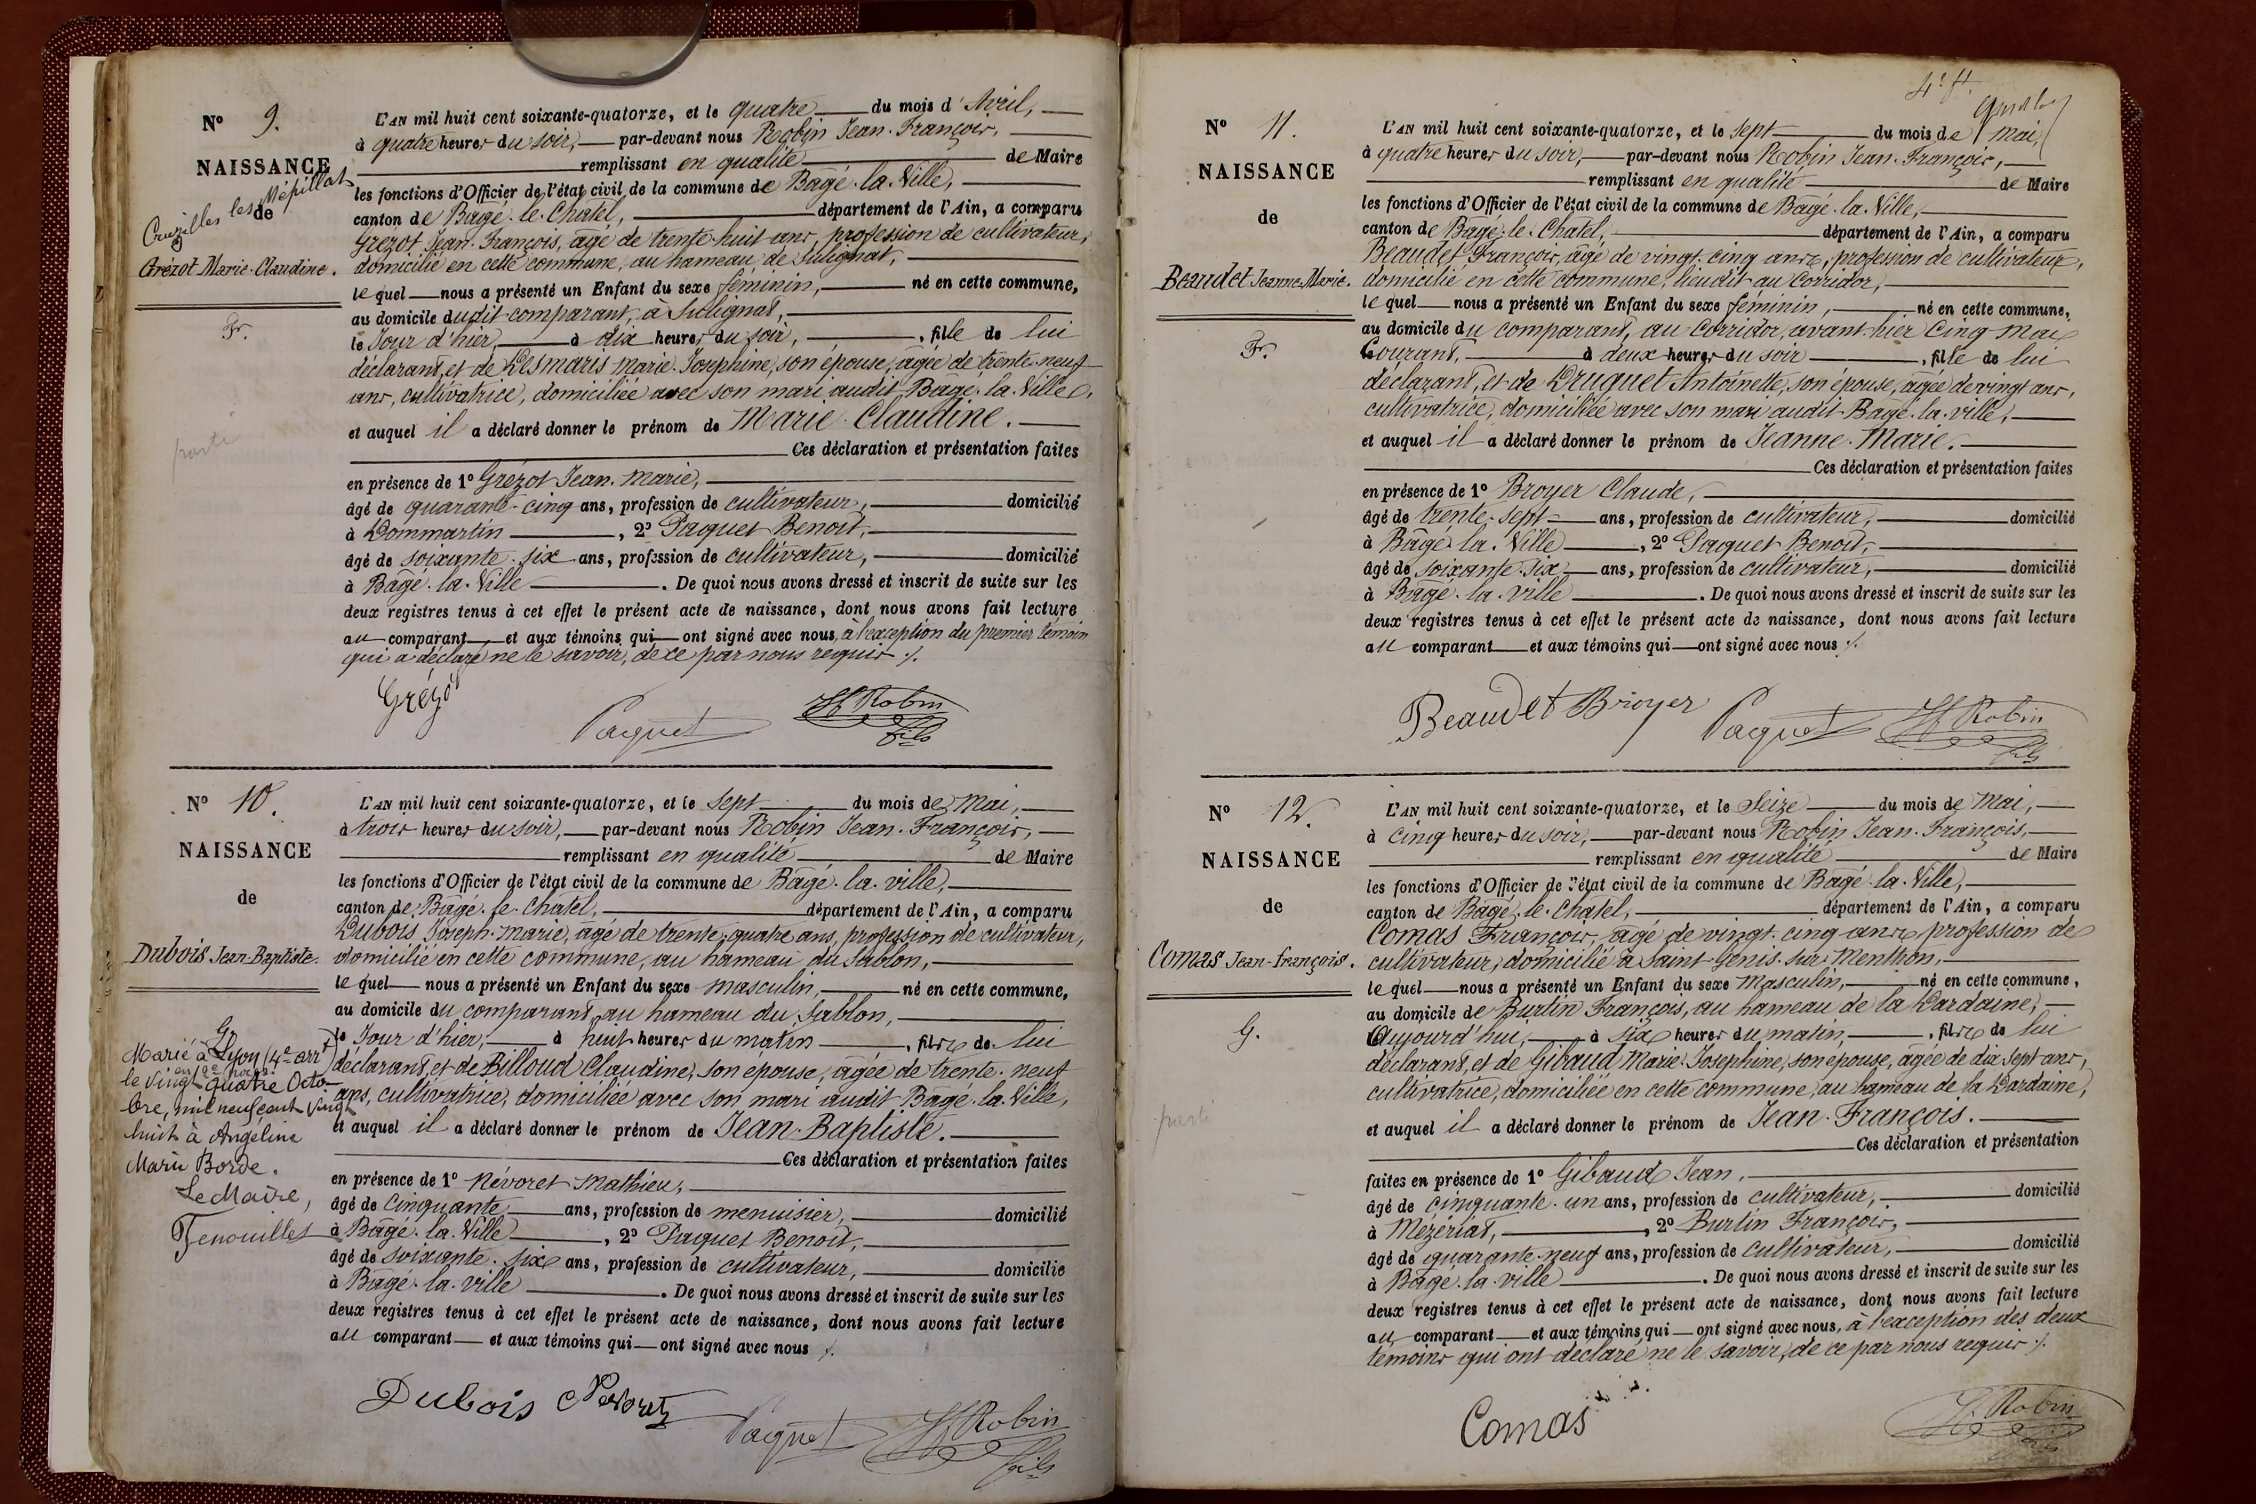 N° 9.
NAISSANCE
de
Cruzilles les Mépillat
Grézot Marie-Claudine.
Fr.
L'AN mil huit cent soixante-quatorze, et le quatre du mois d'Avril,
à quatre heures du soir, par-devant nous Robin Jean-François,
remplissant en qualité de Maire
les fonctions d'Officier de l'état civil de la commune de Bâgé-la-Ville,
canton de Bâgé-le-Châtel, département de l'Ain, a comparu
Grézot Jean-François, âgé de trente-huit ans, profession de cultivateur,
domicilié en cette commune, au hameau de Sulignat,
lequel nous a présenté un Enfant du sexe féminin, né en cette commune,
au domicile dudit comparant, à Sulignat,
le Jour d'hier, à dix heures du soir, fille de lui
déclarant, et de Desmaris Marie-Josephine, son épouse, âgée de trente-neuf
ans, cultivatrice, domiciliée avec son mari audit Bâgé-la-Ville,
et auquel il a déclaré donner le prénom de Marie-Claudine.
Ces déclaration et présentation faites
en présence de 1° Grézot Jean-Marie,
âgé de quarante-cinq ans, profession de cultivateur, domicilié
à Dommartin, 2° Paquet Benoit,
âgé de soixante-six ans, profession de cultivateur, domicilié
à Bâgé-la-Ville. De quoi nous avons dressé et inscrit de suite sur les
deux registres tenus à cet effet le présent acte de naissance, dont nous avons fait lecture
au comparant et aux témoins qui ont signé avec nous, à l'exception du premier témoin
qui a déclaré ne le savoir, de ce par nous requis ./.
Grézo
Paquet
Robin
fils
N° 10.
NAISSANCE
de
Dubois Jean-Baptiste.
G.
Marié à Lyon (4e arrt)
le vingt quatre Octo-
bre, mil neuf cent vingt
huit à Angéline
Marie Borde.
Le Maire,
Fenouillet
L'AN mil huit cent soixante-quatorze, et le sept du mois de Mai,
à trois heures du soir, par-devant nous Robin Jean-François,
remplissant en qualité de Maire
les fonctions d'Officier de l'état civil de la commune de Bâgé-la-ville,
canton de Bâgé-le-Châtel, département de l'Ain, a comparu
Dubois Joseph-Marie, âgé de trente-quatre ans, profession de cultivateur,
domicilié en cette commune, au hameau du Sablon,
lequel nous a présenté un Enfant du sexe masculin, né en cette commune,
au domicile du comparant, au hameau du Sablon,
le Jour d'hier, à huit heures du matin, fils de lui
déclarant, et de Billoud Claudine, son épouse, âgée de trente-neuf
ans, cultivatrice, domiciliée avec son mari audit Bâgé-la-Ville,
et auquel il a déclaré donner le prénom de Jean-Baptiste.
Ces déclaration et présentation faites
en présence de 1° Névoret Mathieu,
âgé de cinquante ans, profession de menuisier, domicilié
à Bâgé-la-Ville, 2° Paquet Benoit,
âgé de soixante-six ans, profession de cultivateur, domicilié
à Bâgé-la-ville. De quoi nous avons dressé et inscrit de suite sur les
deux registres tenus à cet effet le présent acte de naissance, dont nous avons fait lecture
au comparant et aux témoins qui ont signé avec nous ./.
Dubois Nevoret
Paquet
Robin
fils
N° 11.
NAISSANCE
de
Beaudet Jeanne-Marie.
Fr.
L'AN mil huit cent soixante-quatorze, et le sept du mois de mai,
à quatre heures du soir, par-devant nous Robin Jean-François,
remplissant en qualité de Maire
les fonctions d'Officier de l'état civil de la commune de Bâgé-la-Ville,
canton de Bâgé-le-Châtel, département de l'Ain, a comparu
Beaudet François, âgé de vingt-cinq ans, profession de cultivateur,
domicilié en cette commune, lieudit au Corridor,
lequel nous a présenté un Enfant du sexe féminin, né en cette commune,
au domicile du comparant, au Corridor, avant-hier cinq mai
Courant, à deux heures du soir, fille de lui
déclarant, et de Druguet Antoinette, son épouse, âgée de vingt ans,
cultivatrice, domiciliée avec son mari audit Bâgé-la-ville,
et auquel il a déclaré donner le prénom de Jeanne-Marie.
Ces déclaration et présentation faites
en présence de 1° Broyer Claude,
âgé de trente-sept ans, profession de cultivateur, domicilié
à Bâgé-la-Ville, 2° Paquet Benoit,
âgé de soixante-six ans, profession de cultivateur, domicilié
à Bâgé-la-ville. De quoi nous avons dressé et inscrit de suite sur les
deux registres tenus à cet effet le présent acte de naissance, dont nous avons fait lecture
au comparant et aux témoins qui ont signé avec nous ./.
Beaudet Broyer
Paquet
Robin
fils
N° 12.
NAISSANCE
de
Comas Jean-François.
G.
L'AN mil huit cent soixante-quatorze, et le Seize du mois de Mai,
à cinq heures du soir, par-devant nous Robin Jean-François,
remplissant en qualité de Maire
les fonctions d'Officier de l'état civil de la commune de Bâgé-la-Ville,
canton de Bâgé-le-Châtel, département de l'Ain, a comparu
Comas François, âgé de vingt-cinq ans, profession de
cultivateur, domicilié à Saint-Genis-sur-Menthon,
lequel nous a présenté un Enfant du sexe Masculin, né en cette commune,
au domicile de Burtin François, au hameau de la Dardaine,
Aujourd'hui, à six heures du matin, fils de lui
déclarant, et de Gibaud Marie-Josephine, son épouse, âgée de dix sept ans,
cultivatrice, domiciliée en cette commune, au hameau de la Dardaine,
et auquel il a déclaré donner le prénom de Jean-François.
Ces déclaration et présentation
faites en présence de 1° Gibaud Jean,
âgé de cinquante-un ans, profession de cultivateur, domicilié
à Mézériat, 2° Burtin François,
âgé de quarante-neuf ans, profession de cultivateur, domicilié
à Bâgé-la-ville. De quoi nous avons dressé et inscrit de suite sur les
deux registres tenus à cet effet le présent acte de naissance, dont nous avons fait lecture
au comparant et aux témoins qui ont signé avec nous, à l'exception des deux
témoins qui ont déclaré ne le savoir, de ce par nous requis ./.
Comas
Robin
fils